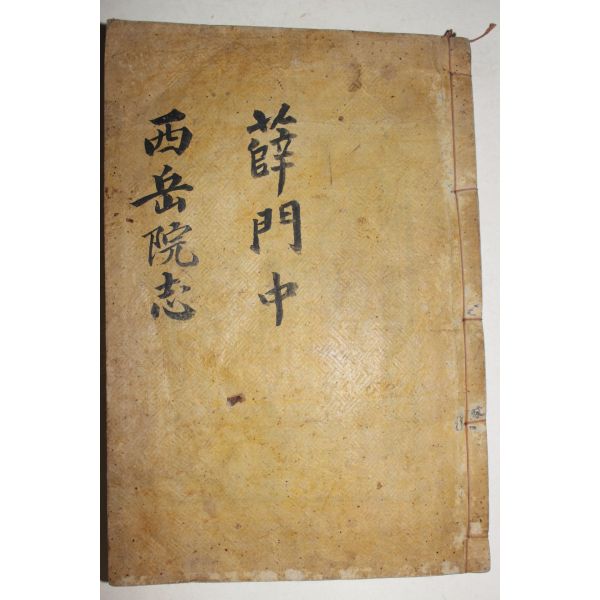 薛門中
西岳院志